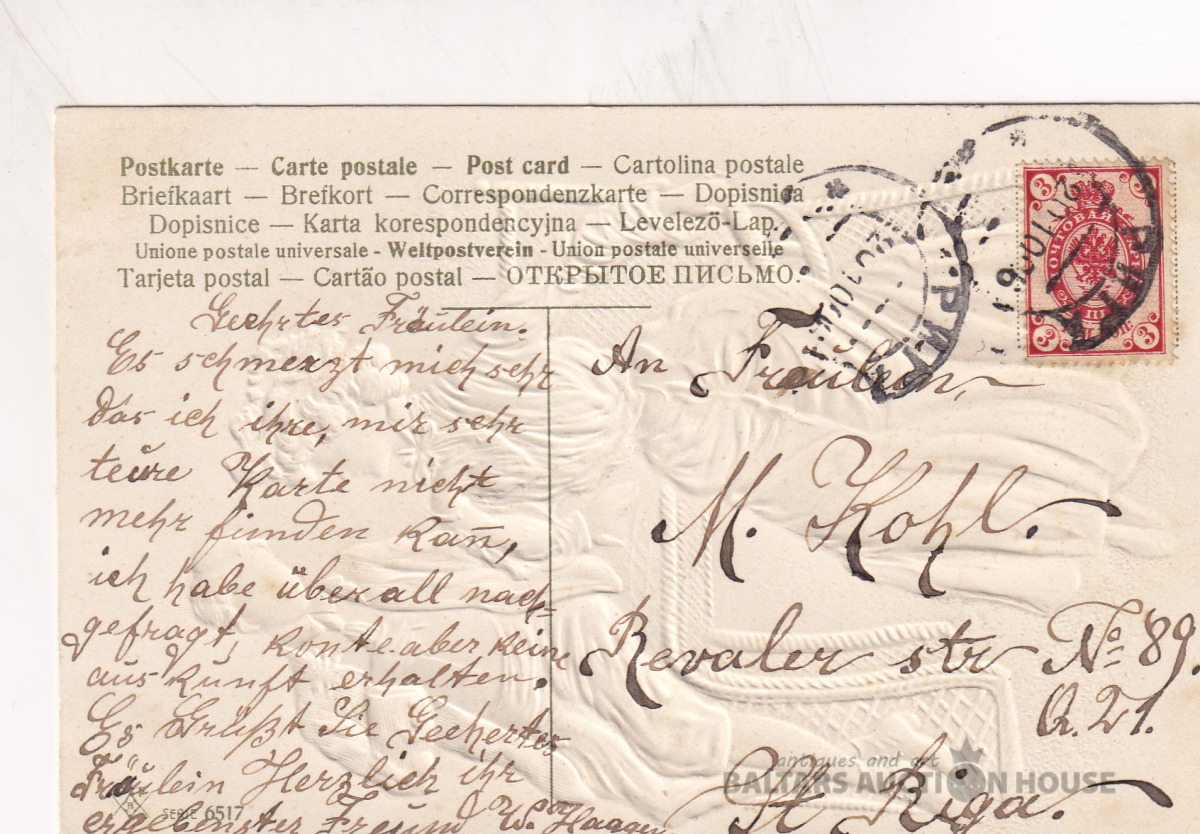 Postkarte — Carte postale — Post card — Cartolina postale
Briefkaart — Brefkort — Correspondenzkarte — Dopisnica
Dopisnice — Karta korespondencyjna — Levelező-Lap.
Unione postale universale - Weltpostverein - Union postale universelle
Tarjeta postal — Cartão postal — ОТКРЫТОЕ ПИСЬМО.
Geehrtes Fräulein.
Es schmerzt mich sehr
das ich ihre, mir sehr
teure Karte nicht
mehr finden kan̄,
ich habe überall nach-
gefragt, konte aber keine
auskunft erhalten.
Es Grüßt Sie Geehertes
Fräulein Herzlich ihr
ergebenster Freund W. v. Haagen
SERIE 6517
An Fräulein,
M. Kohl.
Revaler str № 89.
Q. 21.
St Riga.
3 3
ПОЧТОВАЯ
III
3 3
РИГА
РИГА
antiques and art
BALTARS AUCTION HOUSE